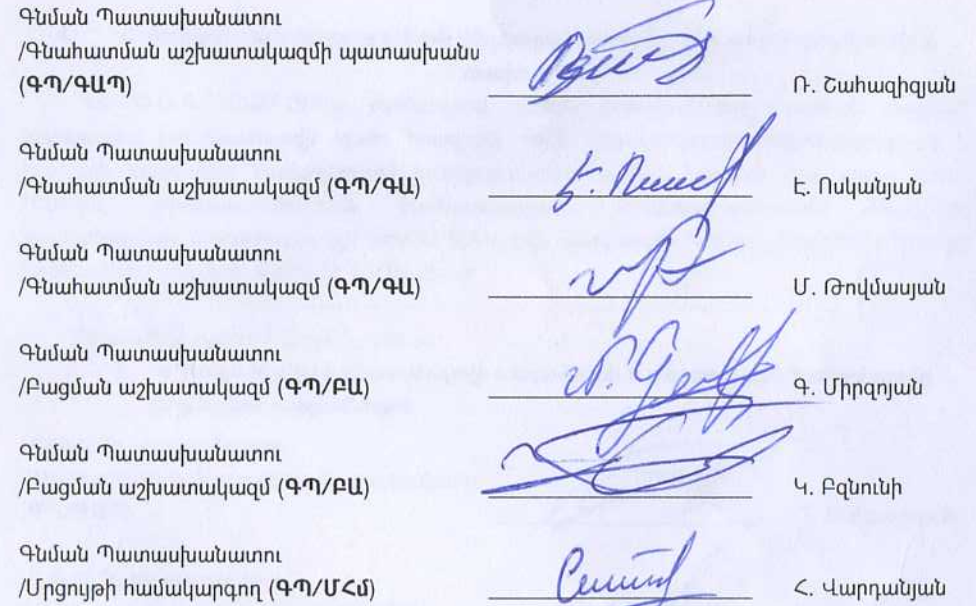 Գնման Պատասխանատու
/Գնահատման աշխատակազմի պատասխանատու
(ԳՊ/ԳԱՊ) Ռ. Շահազիզյան
Գնման Պատասխանատու
/Գնահատման աշխատակազմ (ԳՊ/ԳԱ) Է. Ոսկանյան
Գնման Պատասխանատու
/Գնահատման աշխատակազմ (ԳՊ/ԳԱ) Մ. Թովմասյան
Գնման Պատասխանատու
/Բացման աշխատակազմ (ԳՊ/ԲԱ) Գ. Միրզոյան
Գնման Պատասխանատու
/Բացման աշխատակազմ (ԳՊ/ԲԱ) Կ. Բզնունի
Գնման Պատասխանատու
/Մրցույթի համակարգող (ԳՊ/ՄՀմ) Հ. Վարդանյան